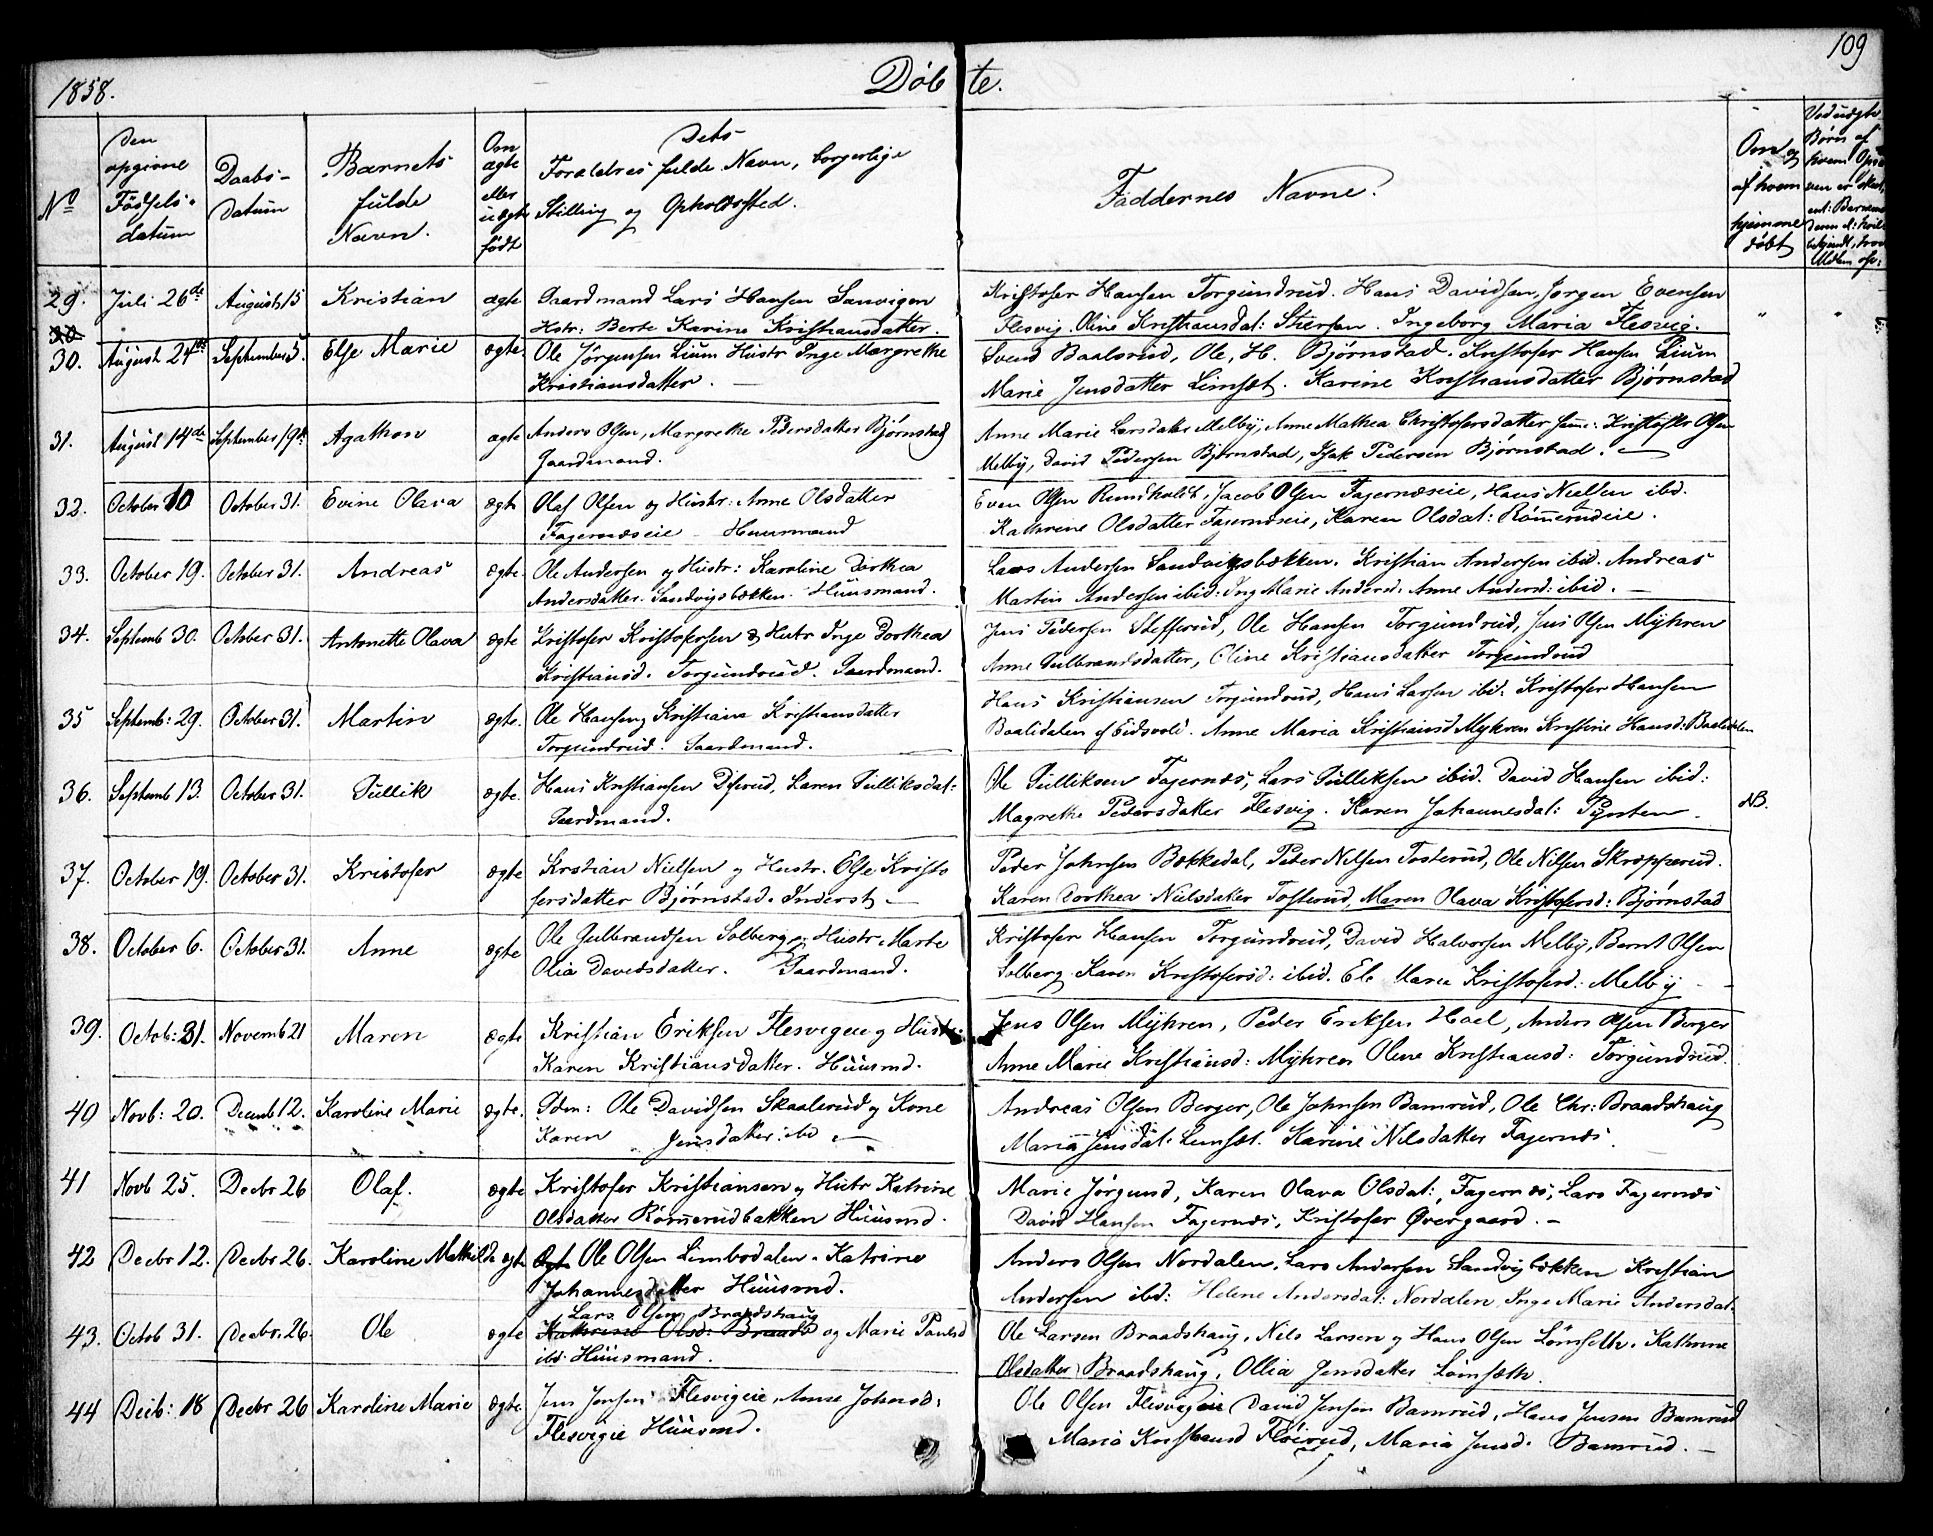 109
1858.
Döbte.
No
Den opgivne Fødsels-datum
Daabs-Datum
Barnets fulde Navn.
Om ægte eller uægte født
Dets Forældres fulde Navn, borgerlige Stilling og Opholdssted.
Faddernes Navne.
Om og af hvem hjemmedøbt
29. Juli 26de August 15 Kristian ægte Gaardmand Lars Hansen Kristofer Hansen Torgundrud. Hans Davidsen, Jørgen Evensen
Hstr: Berte Karine Kristiansdatter. Flesvig. Oline Kristiansdat: Ingeborg Maria Flesvig.
30. August 24de September 5. Else Marie ægte. Ole Jørgensen Lium Hustr Inge Margrethe Svend Baalsrud, Ole, H. Bjørnstad. Kristofer Hansen Lium
Kristiansdatter. — Marie Jensdatter Limsæt. Karine Kristiansdatter Bjørnstad
31. August 14de September 19de Agathon ægte Anders Olsen, Margrethe Pedersdatter Bjørnstad Anne Marie Larsdatter Melby, Anne Mathea Christofersdatter Kristoffer Olsen
Gaardmand. Melby, David Pedersen Bjørnstad, Isak Pedersen Bjørnstad. —
32. October 10 October 31. Evine Olava ægte Olaf Olsen og Hustr: Anne Olsdatter Even Olsen Rundholdt, Jacob Olsen Fagernæseie, Hans Nielsen ibd.
Fagernæseie – Huusmand Kathrine Olsdatter Fagernæseie, Karen Olsdat: Römerudeie.
33. October 19. October 31. Andreas ægte. Ole Andersen og Hustr: Karoline Dorthea Lars Andersen Sandvigsbækken. Kristian Andersen ibid. Andreas
Andersdatter. Sandvigsbækken. Huusmand. Martin Andersen ibid. Ing Marie Andersd. Anne Andersd: ibid. —
34. Septemb 30. October 31. Antonette Olava ægte Kristofer Kristofersen & Hustr Inge Dorthea Jens Pedersen Stefferud, Ole Hansen Torgundrud, Jens Olsen Myhren
Kristiansd. Torgundrud. Gaardmand. Anne Gulbrandsdatter, Oline Kristiansdatter Torgundrud
35 Septemb: 29. October 31. Martin ægte. Ole Hansen og Kristiane Kristiansdatter Hans Kristiansen Torgundrud, Hans Larsen ibd. Kristofer Hansen
Torgundrud. Gaardmand. Baalidalen af Eidsvold. Anne Maria Kristiansd Myhren Kristine Hansd: Baalidalen
36. Septemb 13. October 31. Gullik ægte. Hans Kristiansen Karen Gulliksdat: Ole Gulliksen Fagernæs, Lars Gulliksen ibid. David Hansen ibid: NB.
Gaardmand. Magrethe Pedersdatter Flesvig. Karen Johannesdat:
37. October 19. October 31. Kristofer ægte Kristian Nielsen og Hustr. Else Kristo Peder Johnsen Bækkedal, Peter Nilsen Tosterud, Ole Nilsen Skræpperud.
fersdatter Bjørnstad. Inderst. — Karen Dorthea Nielsdatter Tosterud, Maren Olava Kristofersd: Bjørnstad
38. October 6. October 31. Anne ægte Ole Gulbrandsen Solberg og Hustr. Marte Kristofer Hansen Torgundrud, David Halvorsen Melby, Bernt Olsen
Olia Davidsdatter. Gaardmand. Solberg Karen Kristofersd: ibid. Marie Kristofersd: Melby –
39. Octob: 31. Novemb 21 Maren ægte Kristian Eriksen Flesvigeie og Hustr: Jens Olsen Myhren, Peder Eriksen Hoel, Anders Olsen Berger
Karen Kristiansdatter. Huusmd. Anne Marie Kristiansd: Myhren Oline Kristiansd: Torgundrud.
40 Novb: 20. Decemb 12. Karoline Marie ægte. Gdm: Ole Davidsen Skaalerud og Kone Andreas Olsen Berger, Ole Johnsen Bamrud, Ole Chr: Braadshaug
Karen Jensdatter: ibd — Maria Jensdat: Limsæt. Karine Nilsdatter Fagernæs.
41 Novb 25. Decbr 26 Olaf. ægte Kristofer Kristiansen og Hustr Katrine Marie Jörgensd, Karen Olava Olsdat:, Fagernæs, Lars Fagernæs
Olsdatter Römerudbakken Huusmd. David Hansen Fagernæs, Kristofer Øvergaard. –
42 Decbr 12. Decbr 26. Karoline Mathilde ægte Ole Olsen Limbodalen. Katrine Anders Olsen Nordalen, Lars Andersen Sandvigbækken Kristian
Johannesdatter Huusmd. Andersen ibd: Helene Andersdat: Nordalen, Inge Marie Andersdat:
Lars Olsen Braadshaug
43. Octob 31. Decbr. 26 Ole ægte Kathrine Olsd: Braads og Marie Paulsd Ole Larsen Braadshaug, Nils Larsen og Hans Olsen Lömsæth. Kathrine
ibd. Huusmand. Olsdatter Braadshaug, Ollia Jensdatter Lömsæth.
44 Decb: 18 Decbr 26 Karoline Marie ægte. Jens Jensen Flesvigeie, Anne Johnsd: Ole Olsen Flesvigeie David Jensen Bamrud, Hans Jensen Bamrud
Flesvigeie Huusmd. Maria Kristiansd Maria Jensd. Bamrud. —